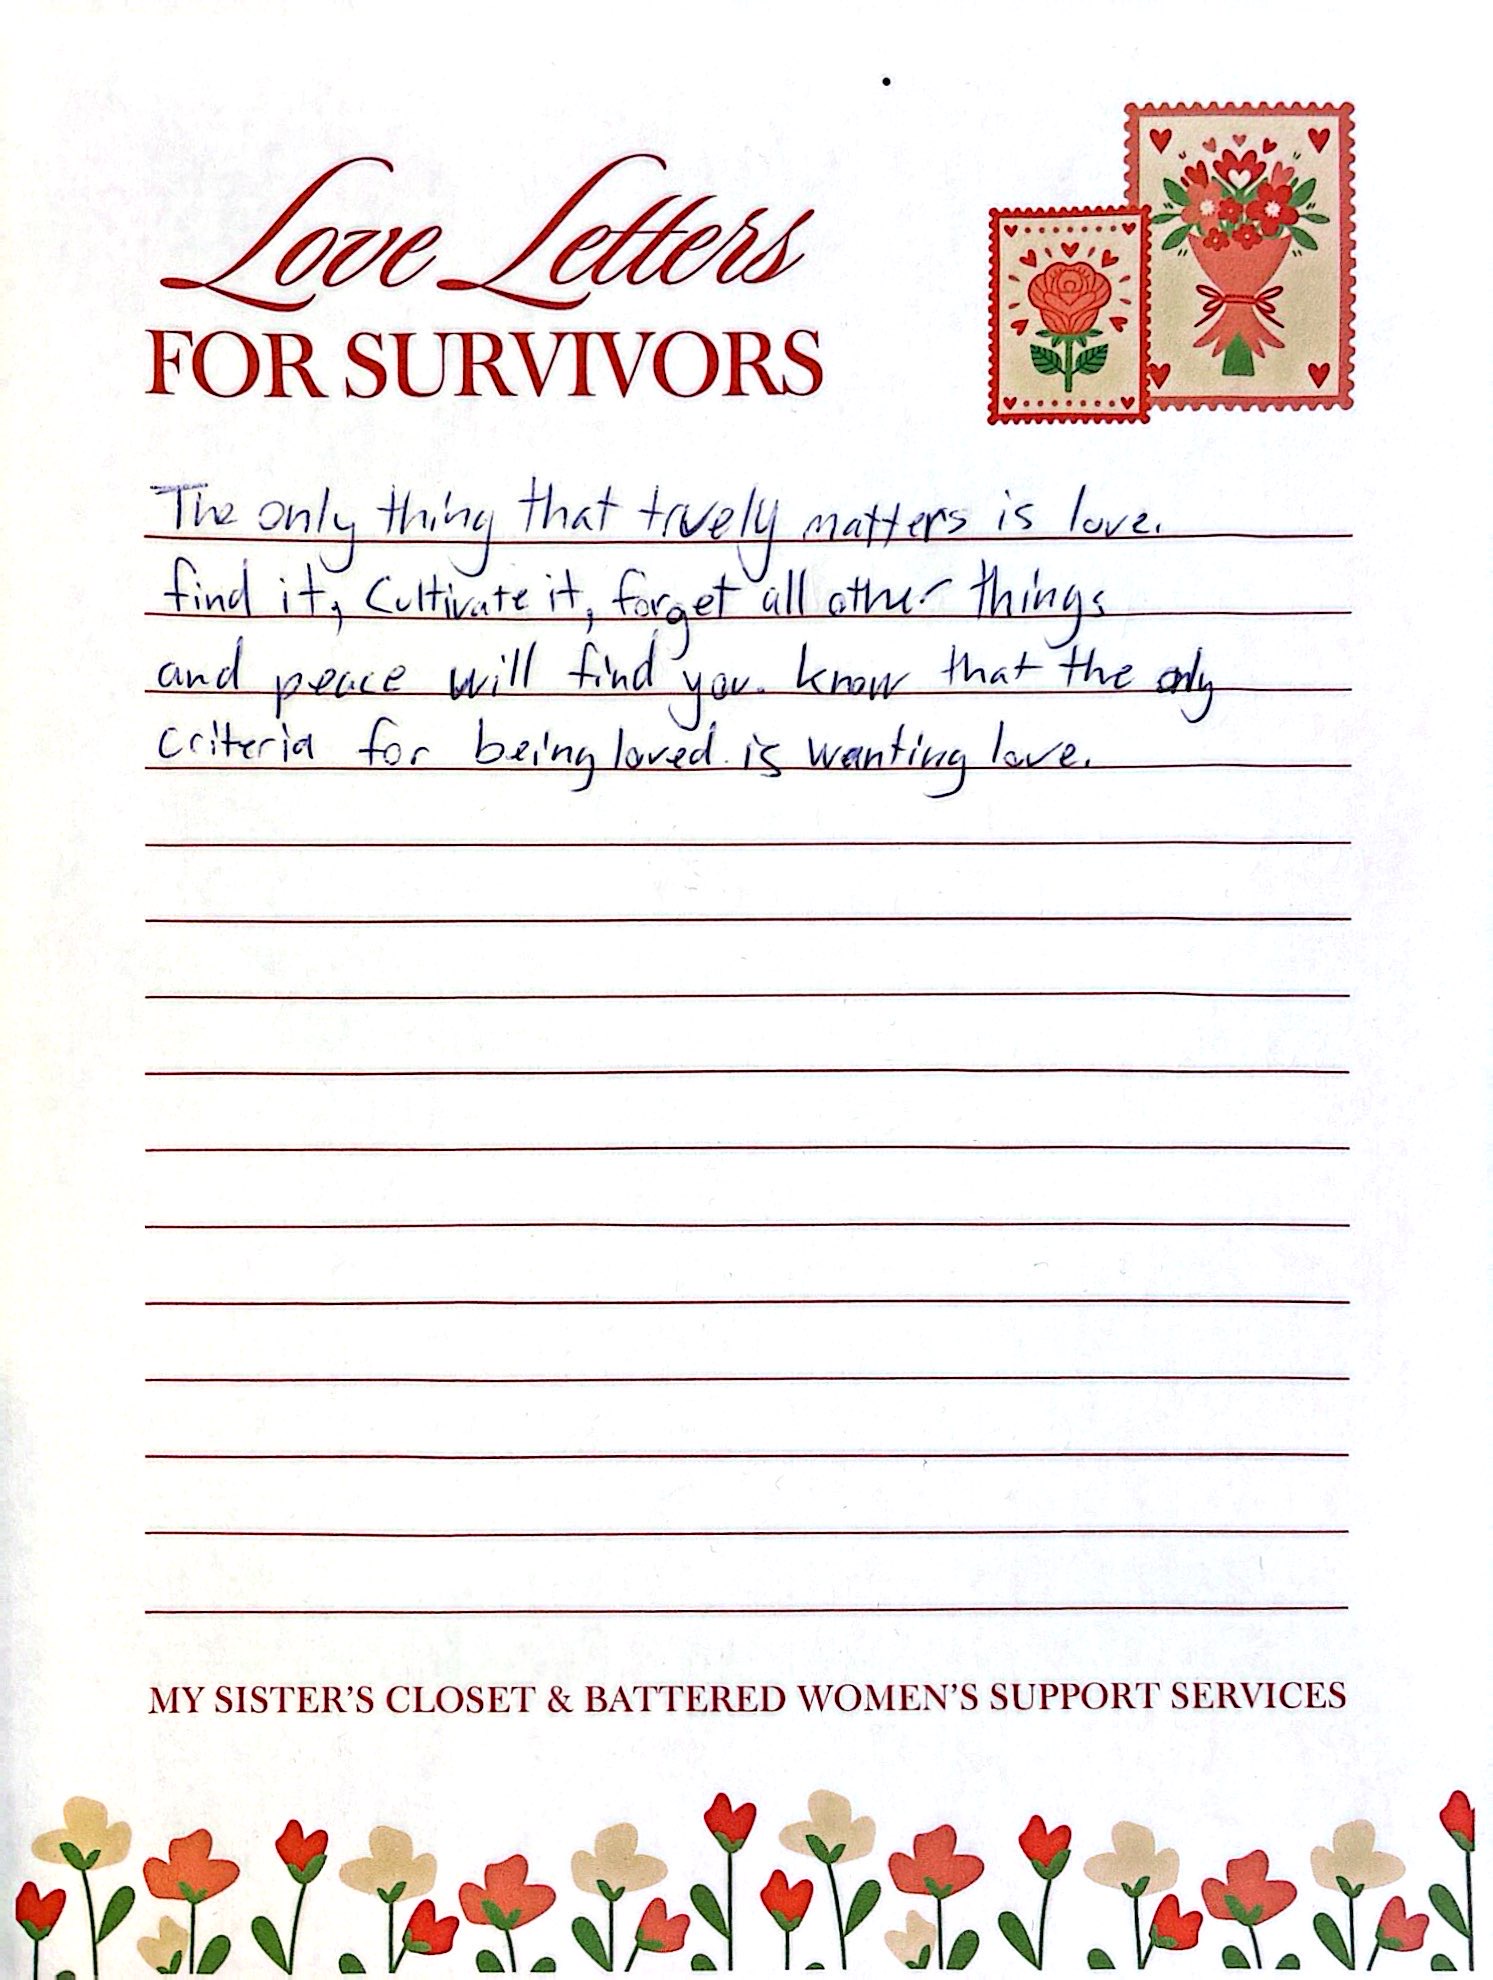 Love Letters
FOR SURVIVORS
The only thing that truely matters is love.
find it, Cultivate it, forget all other things
and peace will find you. know that the only
criteria for being loved is wanting love.
MY SISTER'S CLOSET & BATTERED WOMEN'S SUPPORT SERVICES